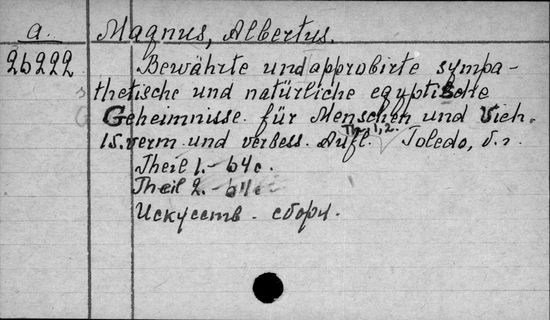 a. Magnus, Albertus.
26222 Bewährte und approbirte sympa-
thetische und natürliche egyptische
Geheimnisse für Menschen und Vieh.
15. verm. und verbess. Aufl. Th. 1,2. Toledo, s.
Theil 1.- 64c.
Theil 2.- 64c
Искусств. сборн.